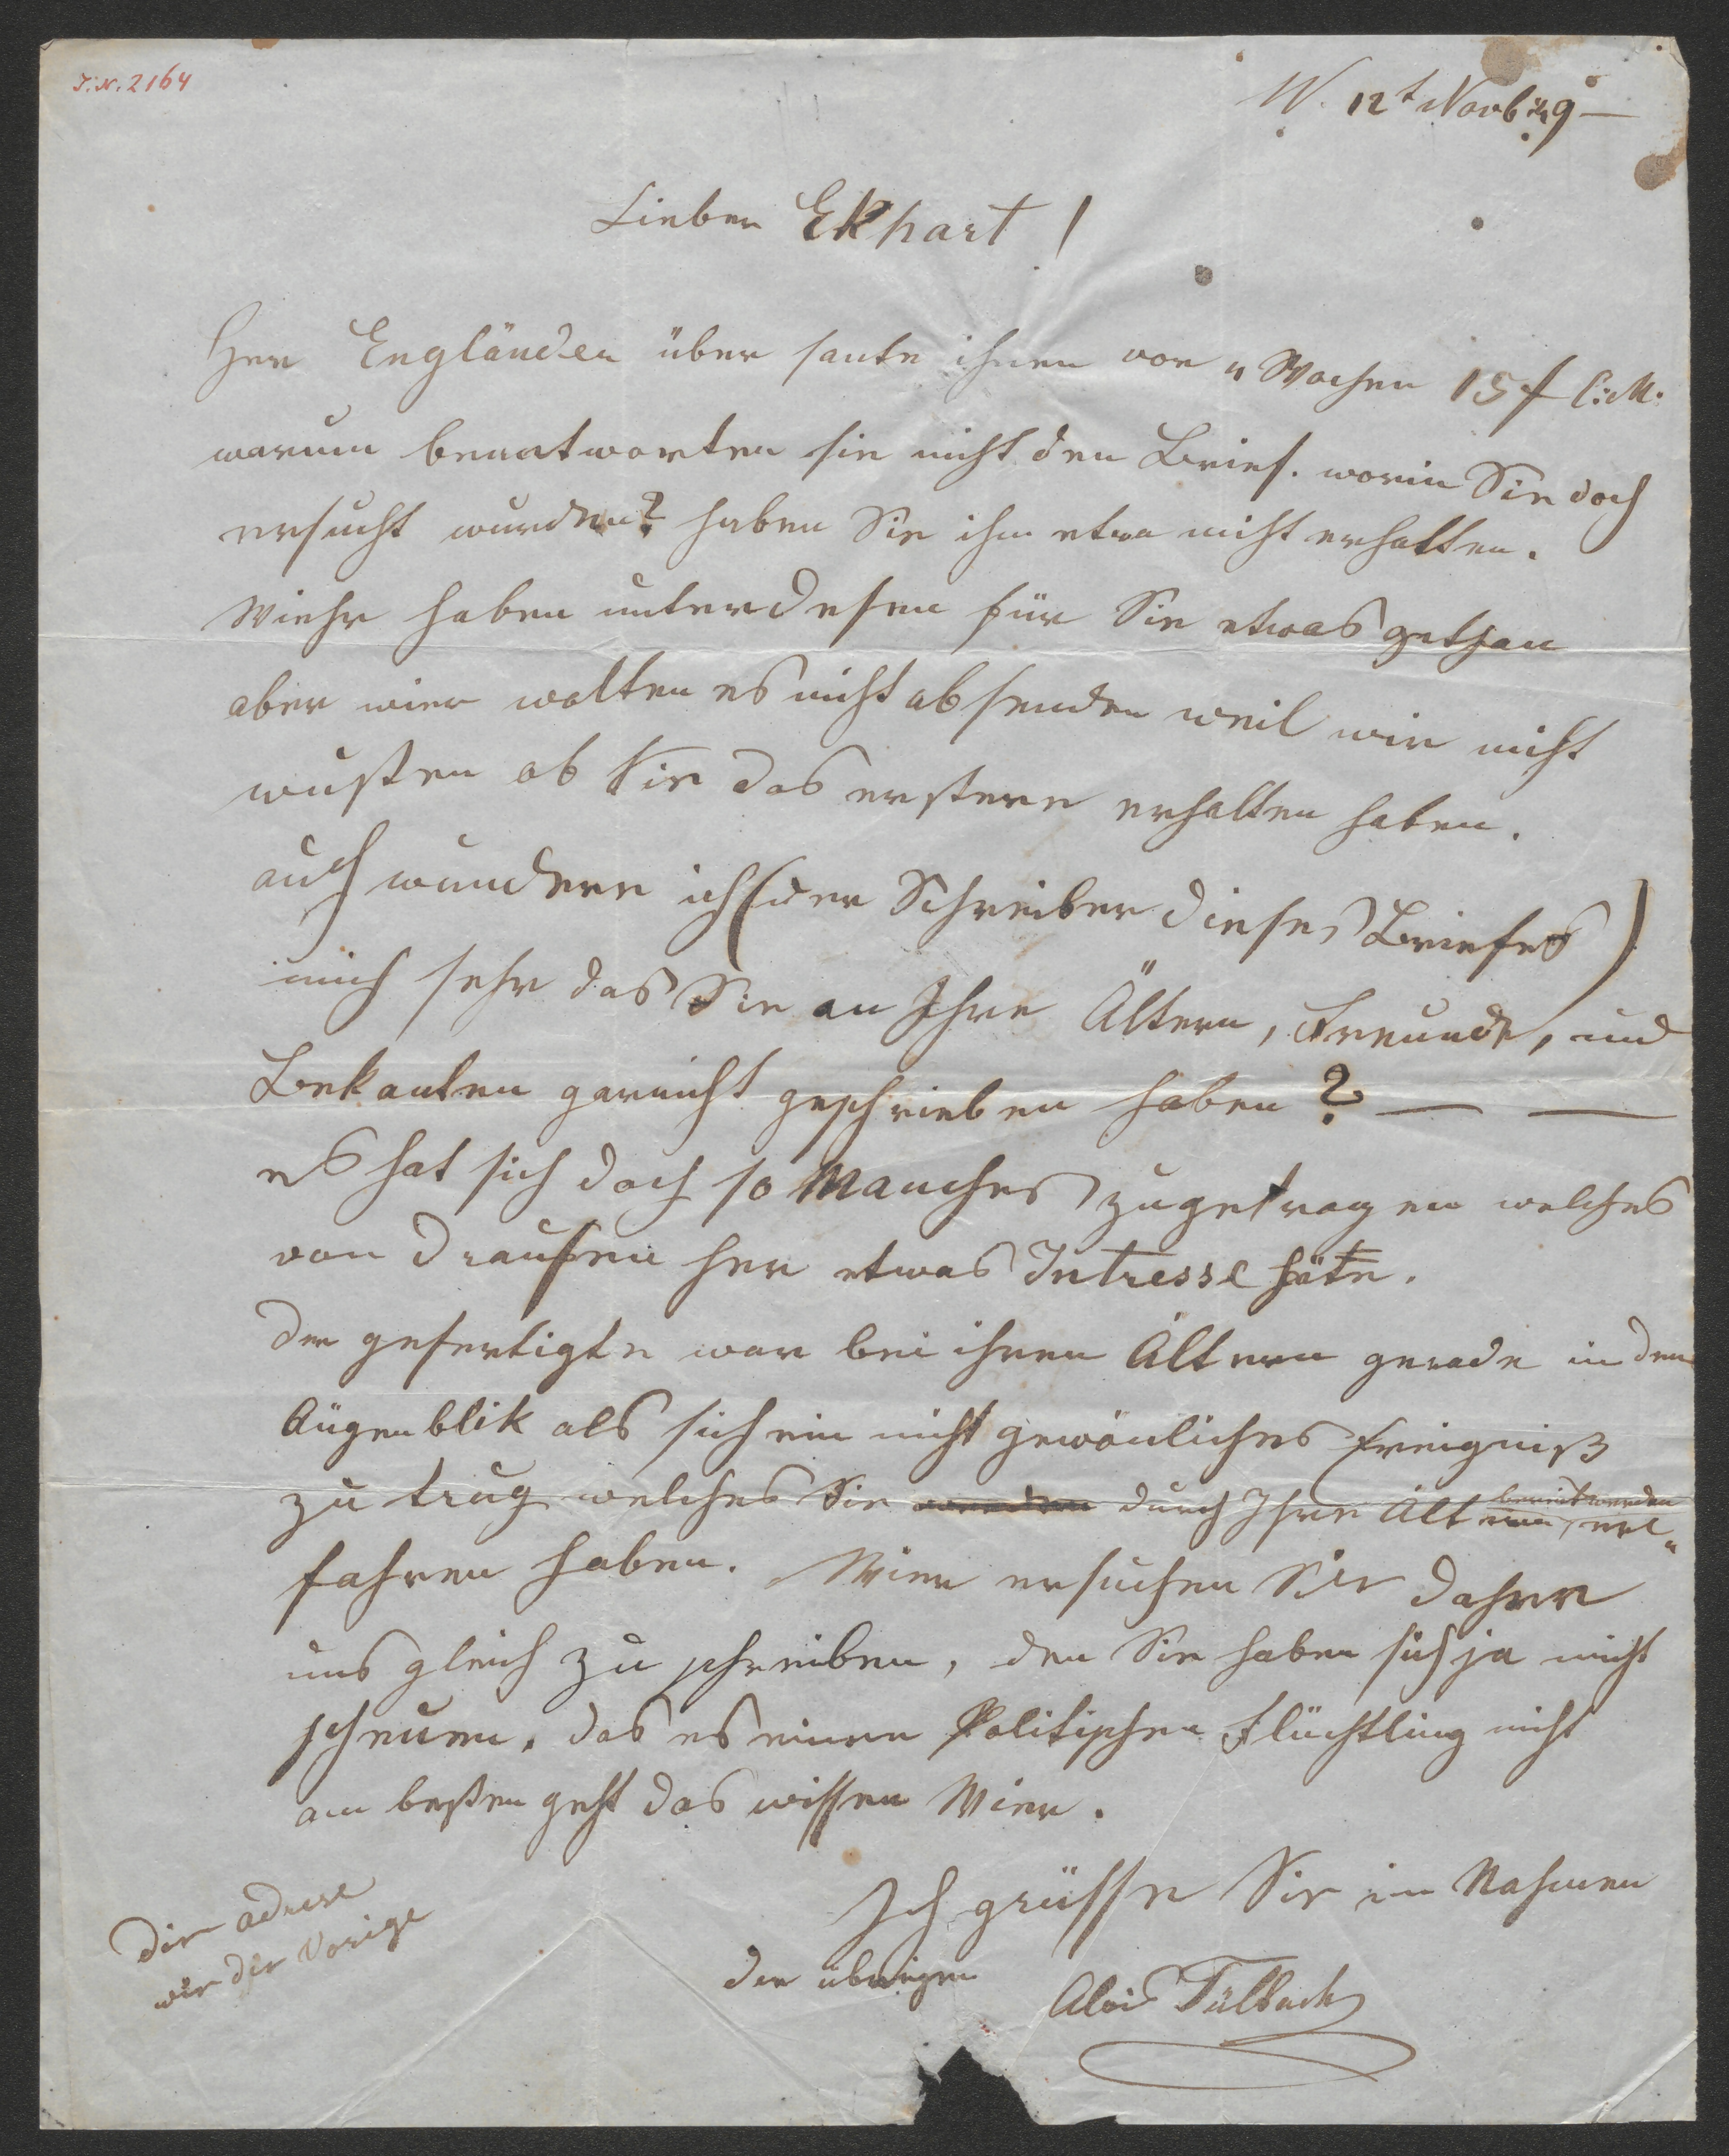 J. N. 2164
W. 12t Novb 49 —
Lieber Ekhart !
Herr Engländer über sante ihnen vor 4 Wochen 15 f C:M.
warum beantworten sie nicht den Brief. worin Sie doch
ersucht wurden? haben Sie ihm etwa nicht erhalten.
Wiehr haben unterdesen für Sie etwas gethan
aber wier wolten es nicht absenden weil wir nicht
wußten ob Sie das erstere erhalten haben.
auch wundere ich (der Schreiber dieses Briefes)
mich sehr das Sie an Ihre Ältern, Freunde, und
Bekanten garnicht geschrieben haben ? — —
es hat sich doch so Manches zugetragen welches
von draußen her etwas Intresse häte.
der gefertigte war bei ihren Ältern gerade in den
Augenblik als sich ein nicht gewönliches Ereigniß
zu trug welches Sie werden durch Ihre Ältern bereit werden er„
fahren haben. Wier ersuchen Sie daher
uns gleich zu schreiben, den Sie haben sich ja nicht
scheuen. das es einen Politischen Flüchtling nicht
am besten geht das wissen Wier.
Ich grüsse Sie im Nahmen
der übrigen Alois
Die adresse
wie die Vorige